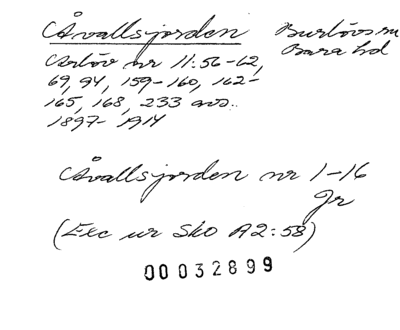 Åvallsjorden Burlövs sn
Bara hd
Arlöv nr 11:56-62,
69, 94, 159-160, 162-
165, 168, 233 avs.
1897-1914
Åvallsjorden nr 1-16
Jr
(Exc ur Sko A2:58)
00032899